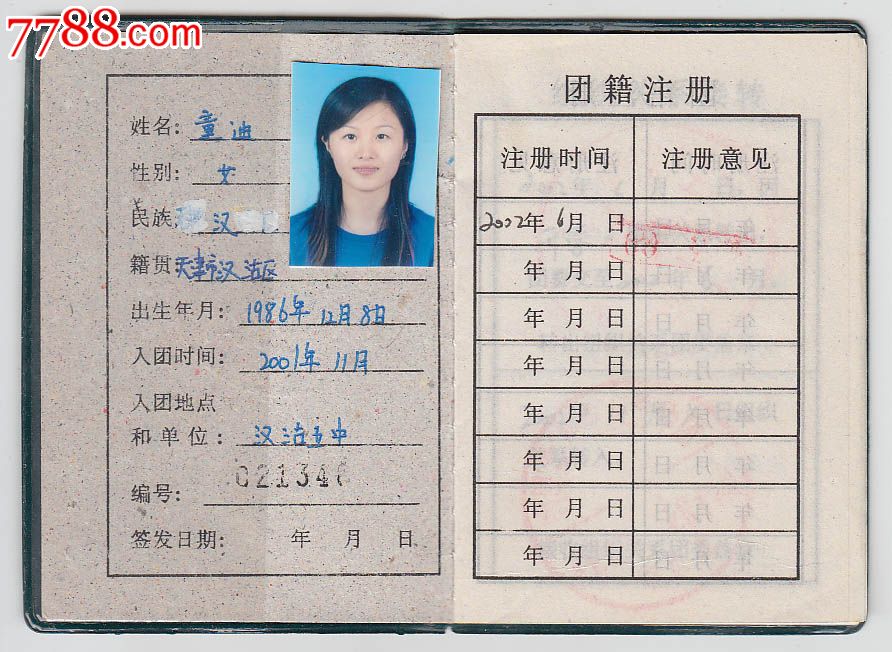 7788.com
姓名: 童迪
性别: 女
民族 汉
籍贯 天津市汉沽区
出生年月: 1986年12月8日
入团时间: 2001年11月
入团地点
和单位: 汉沽五中
编号: 021346
签发日期: 年 月 日
团籍注册
注册时间 注册意见
2002年6月 日
年 月 日
年 月 日
年 月 日
年 月 日
年 月 日
年 月 日
年 月 日